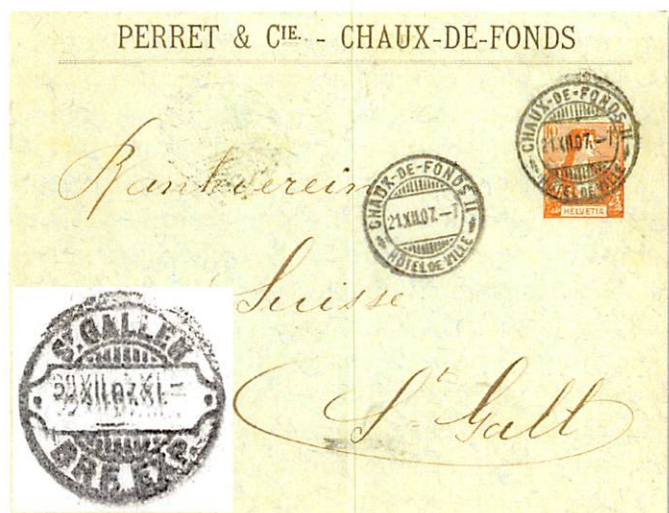 PERRET & CIE. - CHAUX-DE-FONDS
CHAUX-DE-FONDS II
21.XII.07.
HÔTEL DE VILLE
10
HELVETIA
CHAUX-DE-FONDS II
21.XII.07.
HÔTEL DE VILLE
Bankverein
Suisse
St Gall
ST. GALLEN
XII.07
BRF. EXP.